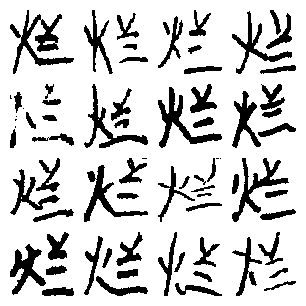 烂烂烂烂
烂烂烂烂
烂烂烂烂
烂烂烂烂